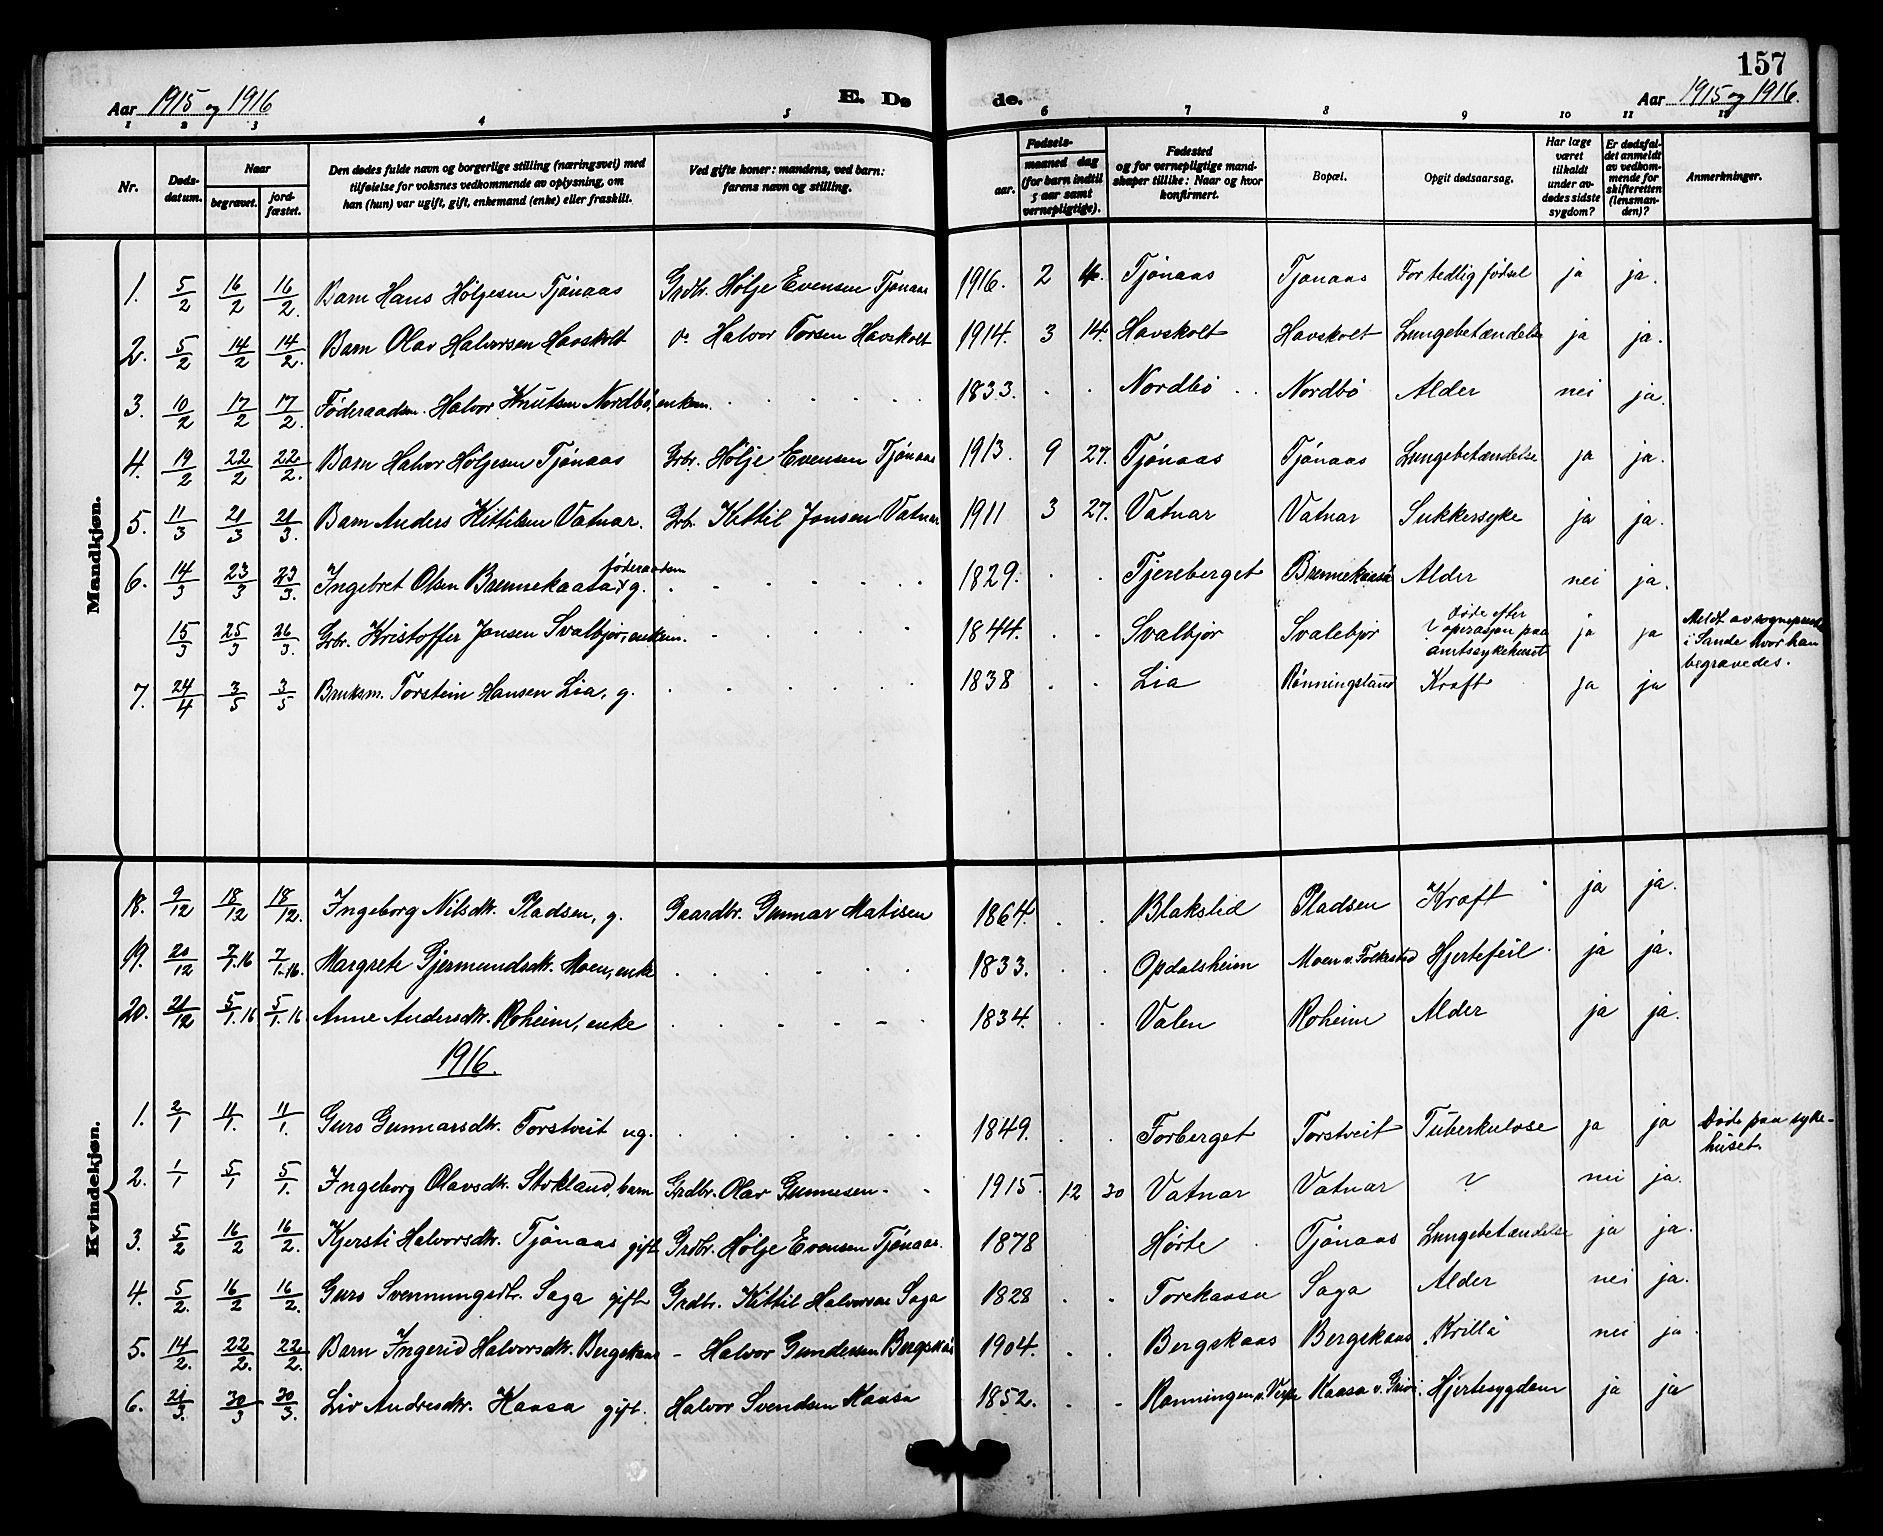 157
Aar 1915 og 1916
E. Dø
de.
Aar 1915 og 1916.
1 2 3 4 5 6 7 8 9 10 11 12
Nr.
Døds-
datum.
Naar
begravet.
jord-
fæstet.
Den dødes fulde navn og borgerlige stilling (næringsvei) med
tilføielse for voksnes vedkommende av oplysning, om
han (hun) var ugift, gift, enkemand (enke) eller fraskilt.
Ved gifte koner: mandens, ved barn:
farens navn og stilling.
Fødsels-
aar.
maaned dag
(for barn indtil
5 aar samt
vernepligtige).
Fødested
og for vernepligtige mand-
skaper tillike: Naar og hvor
konfirmert.
Bopæl.
Opgit dødsaarsag.
Har læge
været
tilkaldt
under av-
dødes sidste
sygdom?
Er dødsfal-
det anmeldt
av vedkom-
mende for
skifteretten
(lensman-
den)?
Anmerkninger.
Mandkjøn.
1. 5/2 16/2 16/2. Barn Hans Høljesen Tjønaas Grdbr. Hølje Evensen Tjønaas 1916. 2 4. Tjønaas Tjønaas For tidlig fødsel ja ja.
2. 5/2 14/2 14/2. Barn Olav Halvorsen Havskolt Halvor Torsen Havskolt 1914. 3 14. Havskolt Havskolt Lungebetændelse ja ja.
3. 10/2 17/2 17/2. Føderaadsm. Halvor Knutsen Nordbø, enkem. 1833. Nordbø Nordbø Alder nei ja.
4. 19/2 22/2 22/2. Barn Halvor Høljesen Tjønaas Grbr. Hølje Evensen Tjønaas 1913. 9 27. Tjønaas Tjønaas Lungebetændelse ja ja.
5. 11/3 21/3 21/3. Barn Anders Kittilsen Vatnar. Grb. Kittil Jonsen Vatnar 1911 3 27. Vatnar Vatnar Sukkersyke ja ja.
6. 14/3 23/3 23/3. Ingebret Olsen Brennekaasa, føderaadsm g. 1829. Tjereberget Brennekaasa Alder nei ja.
15/3 25/3 26/3. Grbr. Kristoffer Jonsen Svalbjør, enkem. 1844. Svalbjør Svalebjør Døde efter operasjon paa amtssykehuset ja ja Meldt av sogneprest i Sande hvor han begravedes.
7. 24/4 3/5 3/5 Bruksm. Torstein Hansen Lia, g. 1838 Lia Rønningsland Kræft ja ja
Kvindekjøn.
18. 9/12 18/12 18/12. Ingeborg Nilsdtr. Pladsen, g. Gaardbr. Gunnar Matisen 1864. Blakstid Pladsen Kræft ja ja.
19. 20/12 7/1.16 7/1.16. Margrete Gjermundsdtr. Moen, enke 1833. Opdalsheim Moen v. Folkestad Hjertefeil ja ja.
20. 21/12 5/1.16 5/1.16. Anne Andersdtr. Roheim, enke 1834. Valen Roheim Alder ja ja.
1916.
1. 2/1 11/1. 11/1. Guro Gunnarsdtr. Torstveit ug. 1849. Forberget Torstveit Tuberkulose ja ja Døde paa syke-
huset.
2. 1/1 5/1 5/1. Ingeborg Olavsdtr. Stokland, barn Grdbr. Olav Gunnesen 1915. 12 30 Vatnar Vatnar ? nei ja.
3. 5/2 16/2 16/2. Kjersti Halvorsdtr. Tjønaas gift Grdbr. Hølje Evensen Tjønaas. 1878 Hørte Tjønaas Lungebetændelse ja ja.
4. 5/2. 16/2 16/2. Guro Svennungsdtr. Saga gift Grdbr. Kittil Halvorsen Saga 1828 Torekaasa Saga Alder nei ja.
5. 14/2. 22/2. 22/2. Barn Ingerid Halvorsdtr. Bergskaas - Halvor Gundersen Bergskaas 1904. Bergskaas Bergskaas "Krilla" nei ja.
6. 21/3. 30/3 30/3. Liv Andresdtr. Kaasa gift. Halvor Svendsen Kaasa 1852. Rønningen Kaasa v. Hjertesygdom ja ja